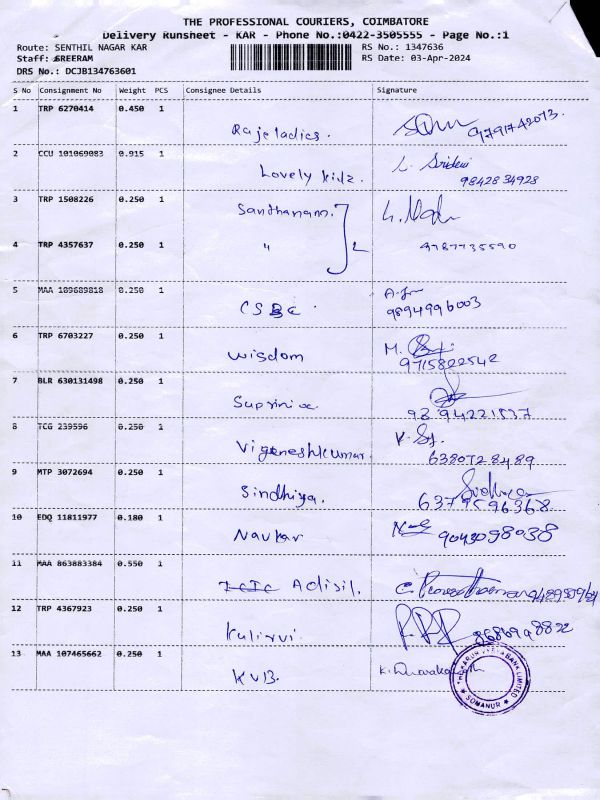 THE PROFESSIONAL COURIERS, COIMBATORE
Delivery Runsheet - KAR - Phone No.:0422-3505555 - Page No.:1
Route: SENTHIL NAGAR KAR RS No.: 1347636
Staff: SREERAM RS Date: 03-Apr-2024
DRS No.: DCJB134763601
S No Consignment No Weight PCS Consignee Details Signature
1 TRP 6270414 0.450 1
Raje ladies. 9791742073.
2 CCU 101069083 0.915 1
Lovely kidz. L. Sridevi
9842834928
3 TRP 1508226 0.250 1 Santhanam.
4 TRP 4357637 0.250 1 " 2 9787735590
5 MAA 109689818 0.250 1
CSBC. 9894996003
6 TRP 6703227 0.250 1
wisdom M.
9715822542
7 BLR 630131498 0.250 1
9894221837
8 TCG 239596 0.250 1
Vigneshkumar 6380728489
9 MTP 3072694 0.250 1
Sindhiya. 6379596368
10 EDQ 11811977 0.180 1
Navkar 9043098038
11 MAA 863883384 0.550 1
Adisil. C.
12 TRP 4367923 0.250 1
Kulirvi 8686998822
13 MAA 107465662 0.250 1
KVB.
THE KARUR VYSYA BANK LIMITED
SOMANUR